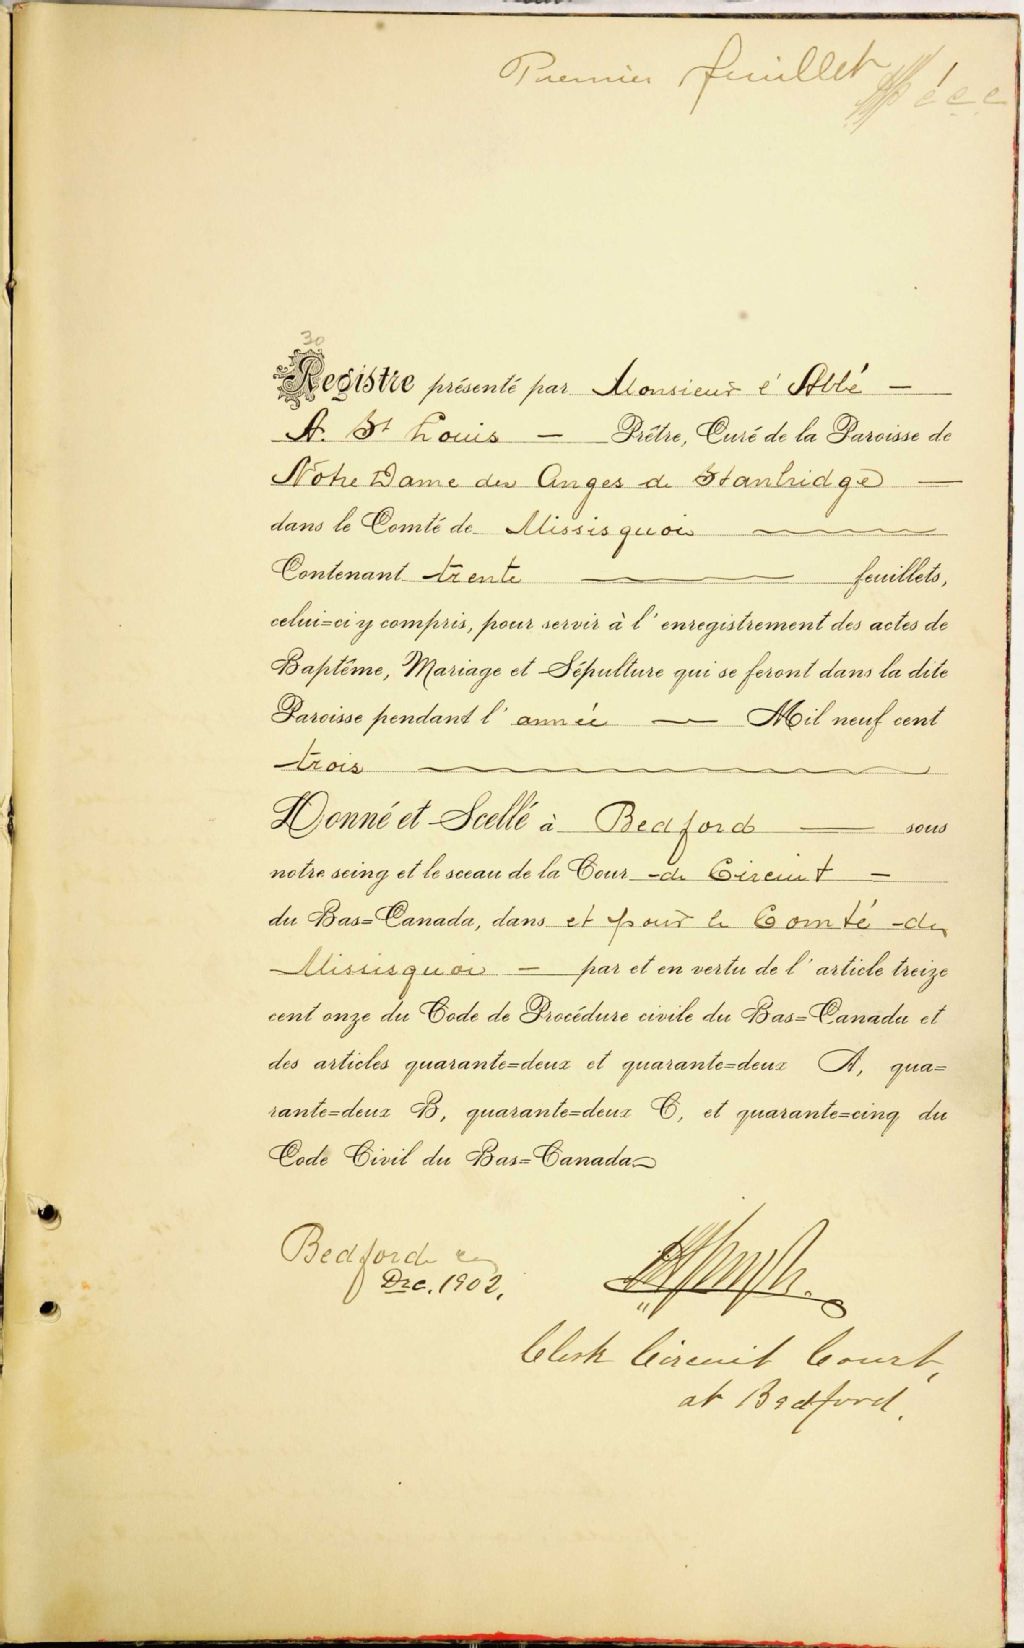 Premier feuillet
30
Registre présenté par Monsieur l'Abbé —
A. St Louis — Prêtre, Curé de la Paroisse de
Notre Dame des Anges de Stanbridge —
dans le Comté de Missisquoi
Contenant trente feuillets,
celui=ci y compris, pour servir à l'enregistrement des actes de
Baptême, Mariage et Sépulture qui se feront dans la dite
Paroisse pendant l'année — Mil neuf cent
trois
Donné et Scellé à Bedford — sous
notre seing et le sceau de la Cour de Circuit —
du Bas=Canada, dans et pour le Comté de
Missisquoi — par et en vertu de l'article treize
cent onze du Code de Procédure civile du Bas=Canada et
des articles quarante=deux et quarante=deux A, qua=
rante=deux B, quarante=deux C, et quarante=cinq du
Code Civil du Bas=Canada
Bedford
Dec. 1902.
Clerk Circuit Court,
at Bedford.